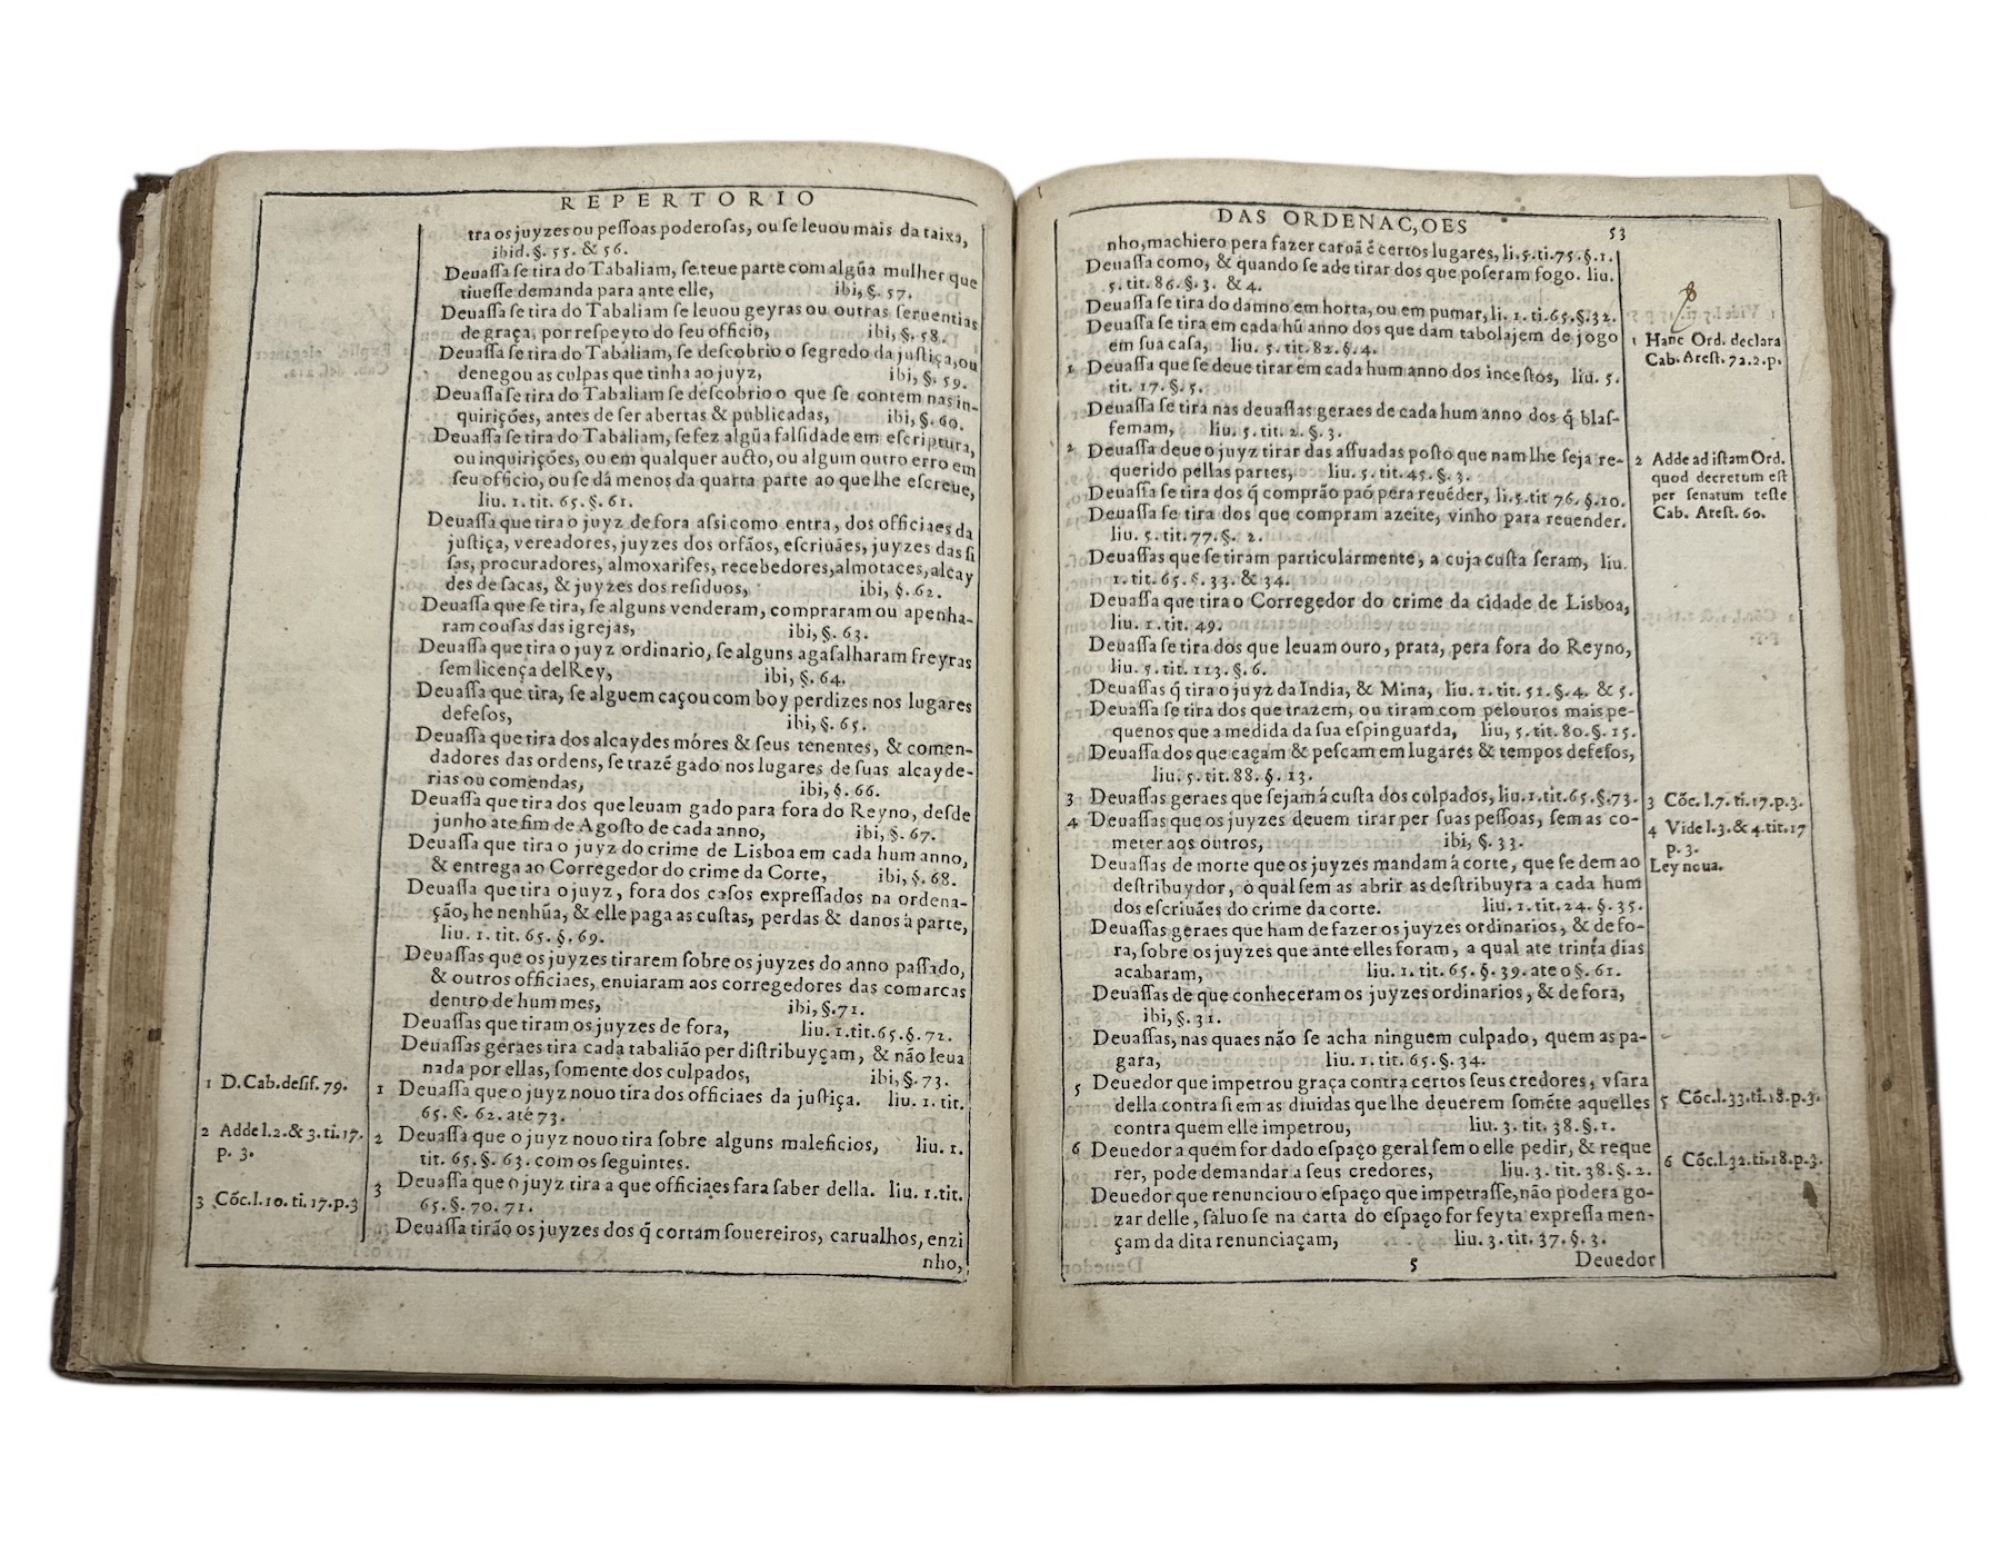 REPERTORIO
tra os juyzes ou peſſoas poderoſas, ou ſe leuou mais da taixa,
ibid. §. 55. & 56.
Deuaſſa ſe tira do Tabaliam, ſe teue parte com algũa mulher que
tiueſſe demanda para ante elle, ibi, §. 57.
Deuaſſa ſe tira do Tabaliam ſe leuou geyras ou outras ſeruentias
de graça, por reſpeyto do ſeu officio, ibi, §. 58.
Deuaſſa ſe tira do Tabaliam, ſe deſcobrio o ſegredo da juſtiça, ou
denegou as culpas que tinha ao juyz, ibi, §. 59.
Deuaſſa ſe tira do Tabaliam ſe deſcobrio o que ſe contem nas in-
quirições, antes de ſer abertas & publicadas, ibi, §. 60.
Deuaſſa ſe tira do Tabaliam, ſe fez algũa falſidade em eſcriptura,
ou inquirições, ou em qualquer aucto, ou algum outro erro em
ſeu officio, ou ſe dá menos da quarta parte ao que lhe eſcreue,
liu. 1. tit. 65. §. 61.
Deuaſſa que tira o juyz de fora aſsi como entra, dos officiaes da
juſtiça, vereadores, juyzes dos orfãos, eſcriuães, juyzes das ſi
ſas, procuradores, almoxarifes, recebedores, almotaces, alcay
des de ſacas, & juyzes dos reſiduos, ibi, §. 62.
Deuaſſa que ſe tira, ſe alguns venderam, compraram ou apenha-
ram couſas das igrejas, ibi, §. 63.
Deuaſſa que tira o juyz ordinario, ſe alguns agaſalharam freyras
ſem licença del Rey, ibi, §. 64.
Deuaſſa que tira, ſe alguem caçou com boy perdizes nos lugares
defeſos, ibi, §. 65.
Deuaſſa que tira dos alcaydes móres & ſeus tenentes, & comen-
dadores das ordens, ſe trazẽ gado nos lugares de ſuas alcayde-
rias ou comendas, ibi, §. 66.
Deuaſſa que tira dos que leuam gado para fora do Reyno, deſde
junho ate fim de Agoſto de cada anno, ibi, §. 67.
Deuaſſa que tira o juyz do crime de Lisboa em cada hum anno,
& entrega ao Corregedor do crime da Corte, ibi, §. 68.
Deuaſſa que tira o juyz, fora dos caſos expreſſados na ordena-
ção, he nenhũa, & elle paga as cuſtas, perdas & danos à parte,
liu. 1. tit. 65. §. 69.
Deuaſſas que os juyzes tirarem ſobre os juyzes do anno paſſado,
& outros officiaes, enuiaram aos corregedores das comarcas
dentro de hum mes, ibi, §. 71.
Deuaſſas que tiram os juyzes de fora, liu. 1. tit. 65. §. 72.
Deuaſſas geraes tira cada tabalião per diſtribuyçam, & não leua
nada por ellas, ſomente dos culpados, ibi, §. 73.
1 D. Cab. deſiſ. 79.
1 Deuaſſa que o juyz nouo tira dos officiaes da juſtiça. liu. 1. tit.
65. §. 62. até 73.
2 Adde l. 2. & 3. ti. 17.
p. 3.
2 Deuaſſa que o juyz nouo tira ſobre alguns maleficios, liu. 1.
tit. 65. §. 63. com os ſeguintes.
3 Cõc. l. 10. ti. 17. p. 3
3 Deuaſſa que o juyz tira a que officiaes fara ſaber della. liu. 1. tit.
65. §. 70. 71.
Deuaſſa tirão os juyzes dos q̃ cortam ſouereiros, carualhos, enzi
nho,
DAS ORDENAÇOES
53
nho, machiero pera fazer caruã ẽ certos lugares, li. 5. ti. 75. §. 1.
Deuaſſa como, & quando ſe a de tirar dos que poſeram fogo. liu.
5. tit. 86. §. 3. & 4.
Deuaſſa ſe tira do damno em horta, ou em pumar, li. 1. ti. 65. §. 32.
Deuaſſa ſe tira em cada hũ anno dos que dam tabolajem de jogo
em ſua caſa, liu. 5. tit. 82. §. 4.
1 Deuaſſa que ſe deue tirar em cada hum anno dos inceſtos, liu. 5.
tit. 17. §. 5.
1 Hanc Ord. declara
Cab. Areſt. 72. 2. p.
Deuaſſa ſe tira nas deuaſſas geraes de cada hum anno dos q̃ blaſ-
femam, liu. 5. tit. 2. §. 3.
2 Deuaſſa deue o juyz tirar das aſſuadas poſto que nam lhe ſeja re-
querido pellas partes, liu. 5. tit. 45. §. 3.
2 Adde ad iſtam Ord.
quod decretum eſt
per ſenatum teſte
Cab. Areſt. 60.
Deuaſſa ſe tira dos q̃ comprão paó pera reuẽder, li. 5. tit 76. §. 10.
Deuaſſa ſe tira dos que compram azeite, vinho para reuender.
liu. 5. tit. 77. §. 2.
Deuaſſas que ſe tiram particularmente, a cuja cuſta ſeram, liu.
1. tit. 65. §. 33. & 34.
Deuaſſa que tira o Corregedor do crime da cidade de Lisboa,
liu. 1. tit. 49.
Deuaſſa ſe tira dos que leuam ouro, prata, pera fora do Reyno,
liu. 5. tit. 113. §. 6.
Deuaſſas q̃ tira o juyz da India, & Mina, liu. 1. tit. 51. §. 4. & 5.
Deuaſſa ſe tira dos que trazem, ou tiram com pelouros mais pe-
quenos que a medida da ſua eſpinguarda, liu, 5. tit. 80. §. 15.
Deuaſſa dos que caçam & peſcam em lugares & tempos defeſos,
liu. 5. tit. 88. §. 13.
3 Deuaſſas geraes que ſejam á cuſta dos culpados, liu. 1. tit. 65. §. 73.
3 Cõc. l. 7. ti. 17. p. 3.
4 Deuaſſas que os juyzes deuem tirar per ſuas peſſoas, ſem as co-
meter aos outros, ibi, §. 33.
4 Vide l. 3. & 4. tit. 17
p. 3.
Deuaſſas de morte que os juyzes mandam á corte, que ſe dem ao
deſtribuydor, o qual ſem as abrir as deſtribuyra a cada hum
dos eſcriuães do crime da corte. liu. 1. tit. 24. §. 35.
Ley noua.
Deuaſſas geraes que ham de fazer os juyzes ordinarios, & de fo-
ra, ſobre os juyzes que ante elles foram, a qual ate trinta dias
acabaram, liu. 1. tit. 65. §. 39. ate o §. 61.
Deuaſſas de que conheceram os juyzes ordinarios, & de fora,
ibi, §. 31.
Deuaſſas, nas quaes não ſe acha ninguem culpado, quem as pa-
gara, liu. 1. tit. 65. §. 34.
5 Deuedor que impetrou graça contra certos ſeus credores, vſara
della contra ſi em as diuidas que lhe deuerem ſomẽte aquelles
contra quem elle impetrou, liu. 3. tit. 38. §. 1.
5 Cõc. l. 33. ti. 18. p. 3.
6 Deuedor a quem for dado eſpaço geral ſem o elle pedir, & reque
rer, pode demandar a ſeus credores, liu. 3. tit. 38. §. 2.
6 Cõc. l. 32. ti. 18. p. 3.
Deuedor que renunciou o eſpaço que impetraſſe, não podera go-
zar delle, ſaluo ſe na carta do eſpaço for feyta expreſſa men-
çam da dita renunciaçam, liu. 3. tit. 37. §. 3.
5
Deuedor